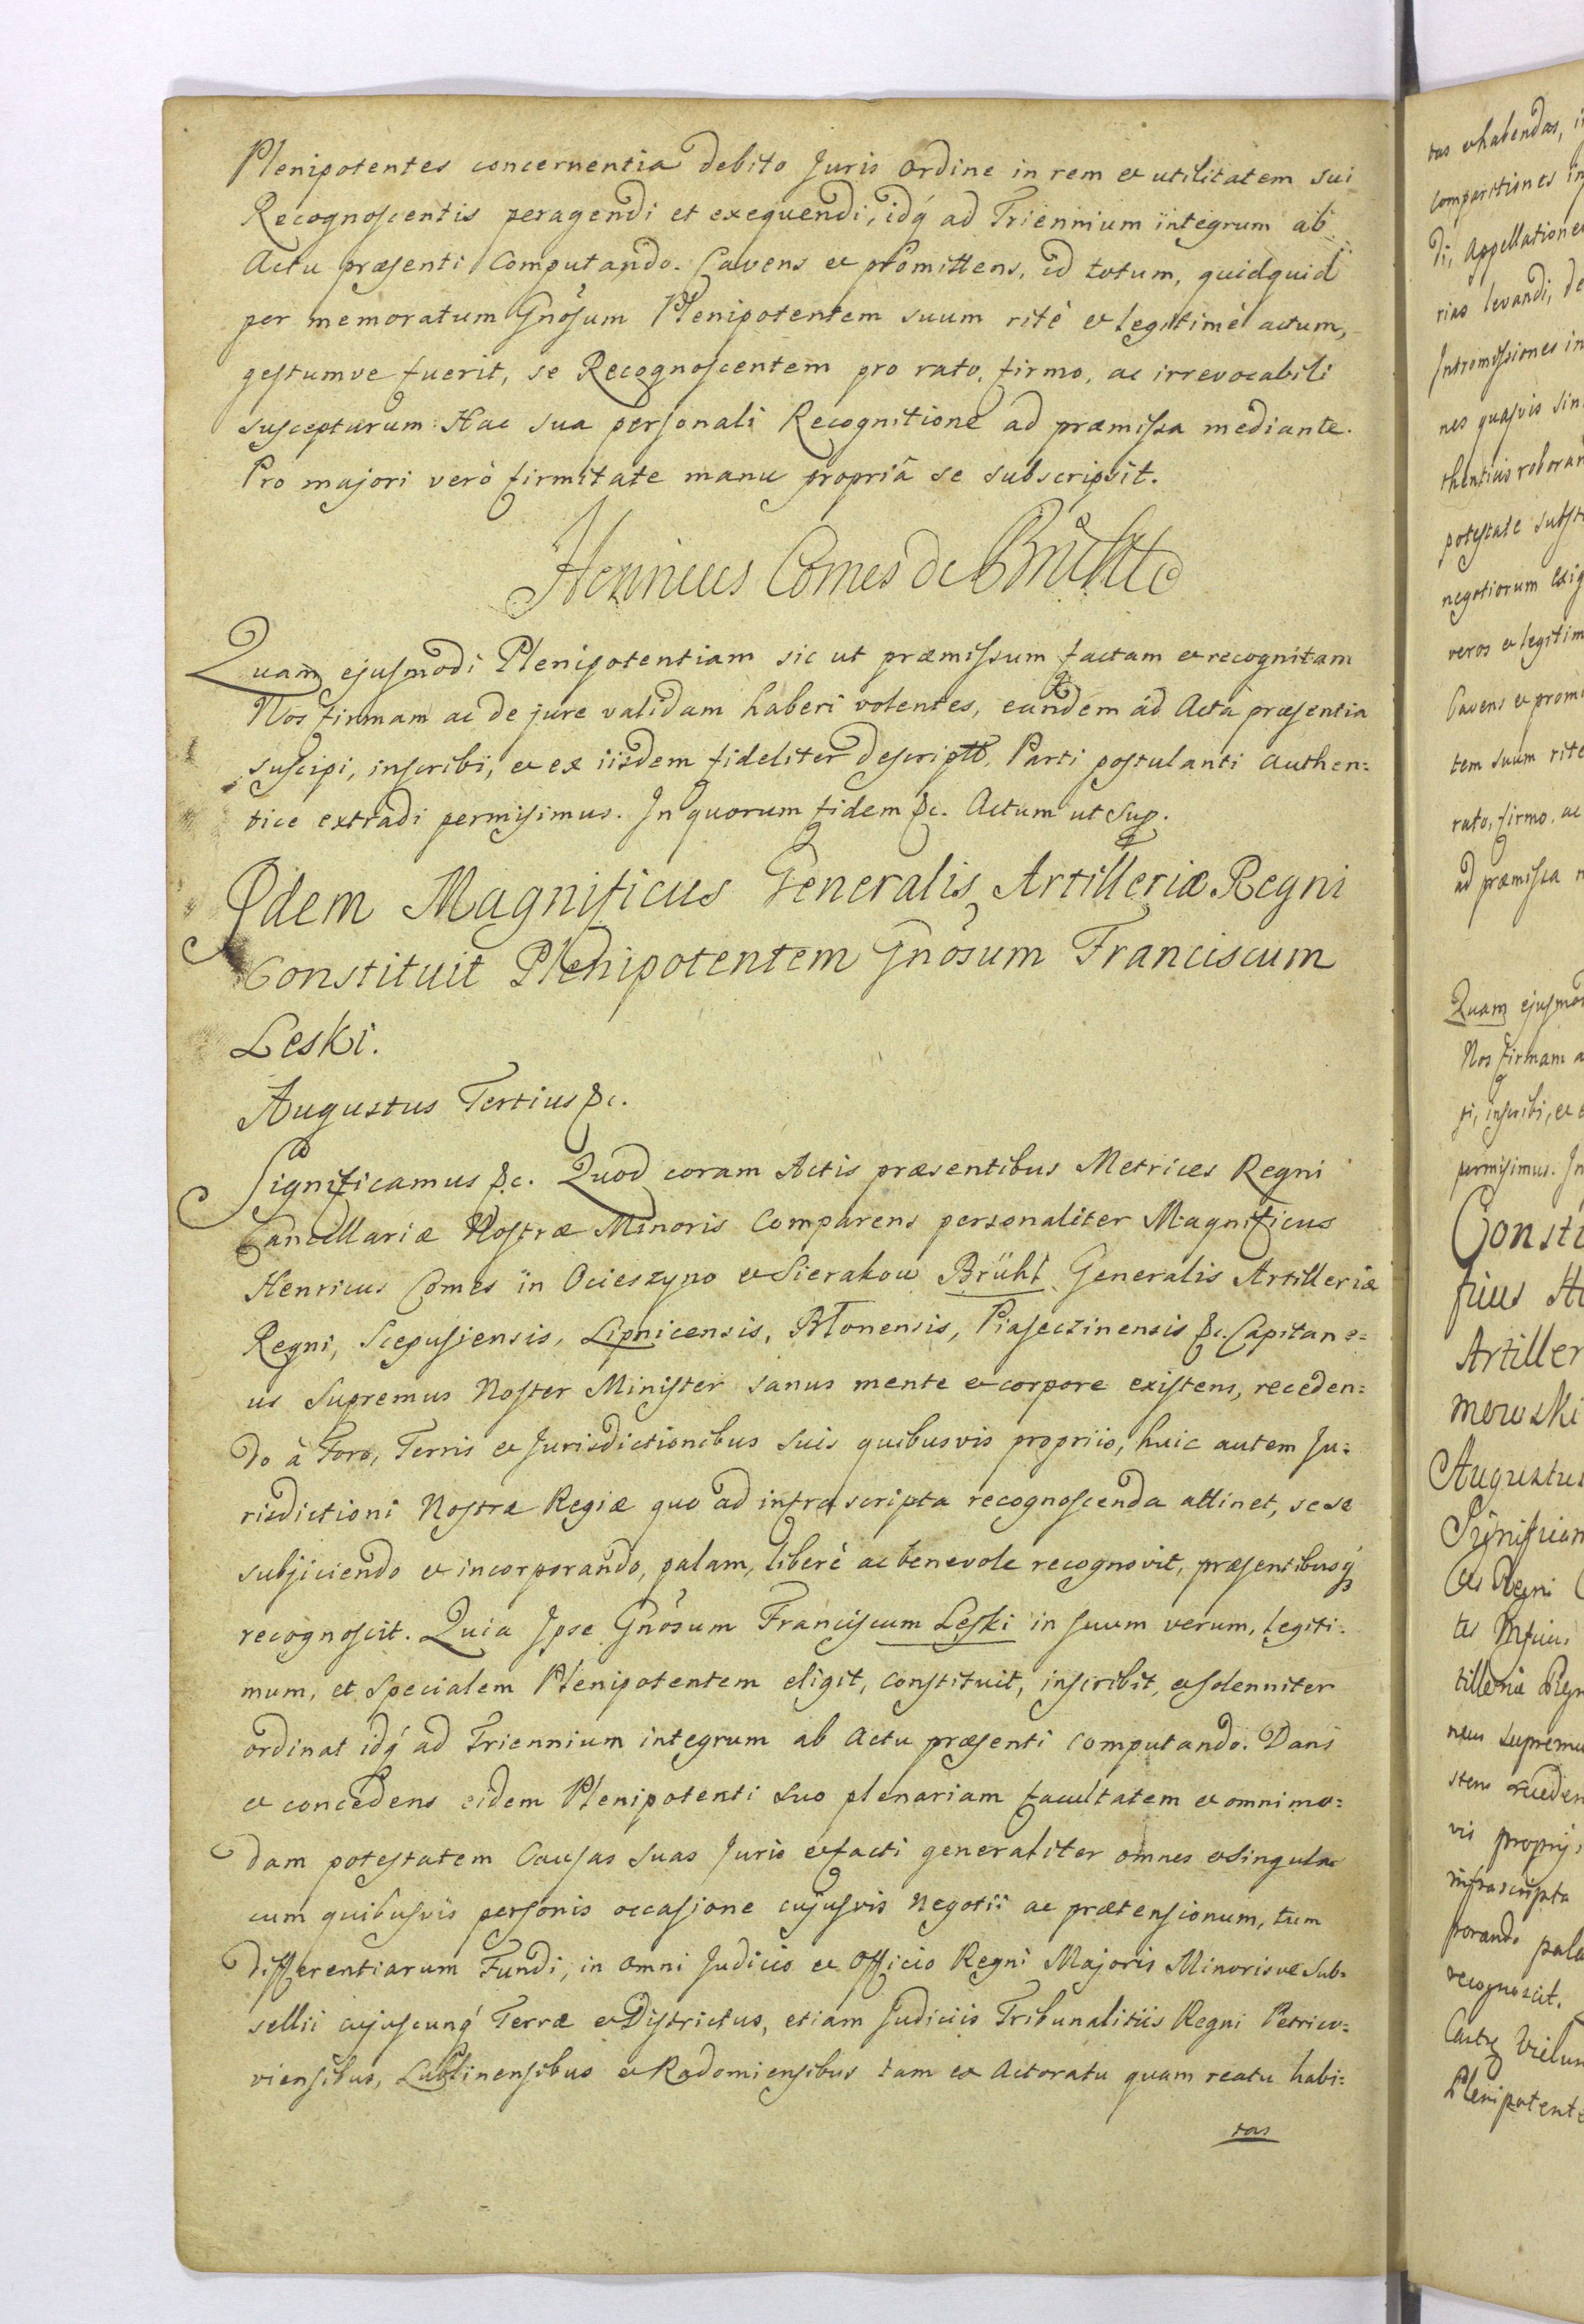 Plenipotentes concernentia debito Juris Ordine in rem et utilitatem sui
Recognoscentis peragendi et exequendi, idq́ ad Triennium integrum ab
Actu præsenti Computando. Cavens et promittens, id totum, quidquid
per memoratum Gnösum Plenipotentem suum ritè et legitimè actum,
gestumve fuerit, se Recognoscentem pro rato, firmo, ac irrevocabili
suscepturum: Hac sua personali Recognitione ad præmissa mediante.
Pro majori verò firmitate manu propriâ se subscripsit.
Henricus Comes de Brühl
Quam ejusmodi Plenipotentiam sic ut præmissum factam et recognitam
Nos firmam ac de jure validam haberi volentes, eandem ad Acta præsentia
suscipi, inscribi, et ex iisdem fideliter descriptã, Parti postulanti authen:
tice extradi permisimus. In quorum fidem &c. Actum ut Sup.
Idem Magnificus Generalis Artilleriæ Regni
Constituit Plenipotentem Gnösum Franciscum
Leski.
Augustus Tertius &c.
Significamus &c. Quod coram Actis præsentibus Metrices Regni
Cancellariæ Nostræ Minoris Comparens personaliter Magnificus
Henricus Comes in Ocieszyno et Sierakow Brühl Generalis Artilleriæ
Regni, Scepusiensis, Lipnicensis, Błonensis, Piaseczinensis &c. Capitane:
us Supremus Noster Minister sanus mente et corpore existens, receden:
do à Foro, Terris et Jurisdictionibus suis quibusvis propriis, huic autem Ju:
risdictioni Nostræ Regiæ quo ad infrascripta recognoscenda attinet, sese
subjiciendo et incorporando, palam, liberè ac benevole recognovit, præsentibusq́
recognoscit. Quia Ipse Gnösum Franciscum Leski in suum verum, legiti:
mum, et Specialem Plenipotentem eligit, constituit, inscribit, et solenniter
ordinat idq́ ad Triennium integrum ab Actu præsenti computando. Dans
et concedens eidem Plenipotenti suo plenariam facultatem et omnimo:
dam potestatem Causas suas Juris et facti generaliter omnes et singulas
cum quibusvis personis occasione cujusvis negotii ac prætensionum, tum
differentiarum Fundi, in omni Judicio et Officio Regni Majoris Minorisve Sub:
sellii cujuscunq́ Terræ et Districtus, etiam Judiciis Tribunalitiis Regni Petrico:
viensibus, Lublinensibus et Radomiensibus tam ex Actoratu quam reatu habi:
tas
tas et habendas,
comparitiones
di, Appellationes
rias levandi, de
Intromissiones in
nes quasvis sin
thenticis roboran
potestate subst
negotiorum exig
veros et legitim
Cavens et promi
tem suum rite
rato, firmo, ac
ad præmissa
Quam ejusmod
Nos firmam a
pi, inscribi, et e
permisimus. In
Consti
ficus
Artiller
mowski
Augustus
Significam
ces Regni
tillerie Reg
neus supremu
stens receden
vis proprijs
infrascripta
porando pala
recognoscit.
Castr Vielun
Plenipotente